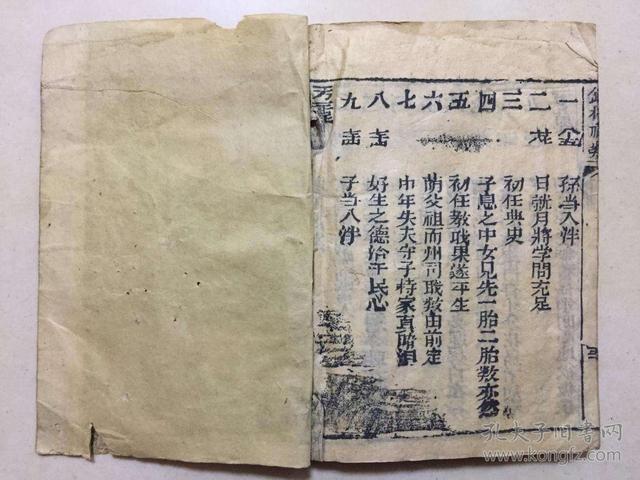 一
孫当入泮
二
日就月將学問充足
三
初任典史
四
子息之中女兄先一胎二胎数亦然
五
初任教職果遂平生
六
荫父祖而州司職数由前定
七
中年失夫守子持家真暗淚
八
好生之德洽于民心
九
子当入泮
孔夫子旧书网
www.kongfz.com